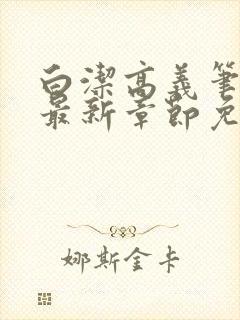 白潔高義筆
最新章節免
娜斯金卡